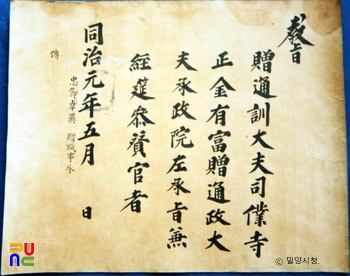 教旨
贈通訓大夫司僕寺
正金有富贈通政大
夫承政院左承旨兼
經筵參贊官者
同治元年五月 日
忠節卓異 贈職事承
傳
ⓒ 밀양시청.